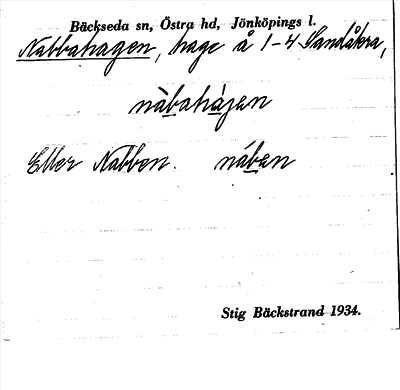 Bäckseda sn, Östra hd, Jönköpings l.
Nabbahagen, hage å 1-4 Sandåkra,
nàbahájen
Eller Nabben. náben
Stig Bäckstrand 1934.